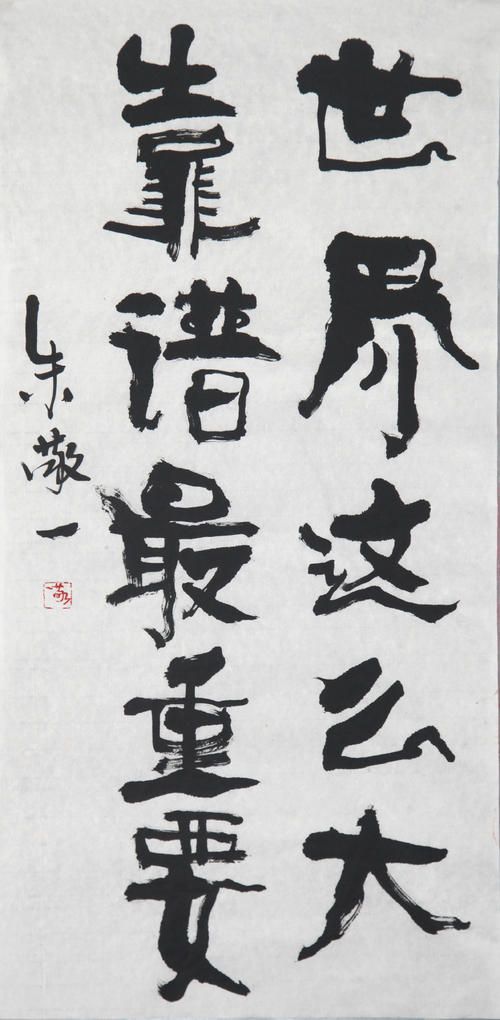 世界这么大
靠谱最重要
朱敬一
敬